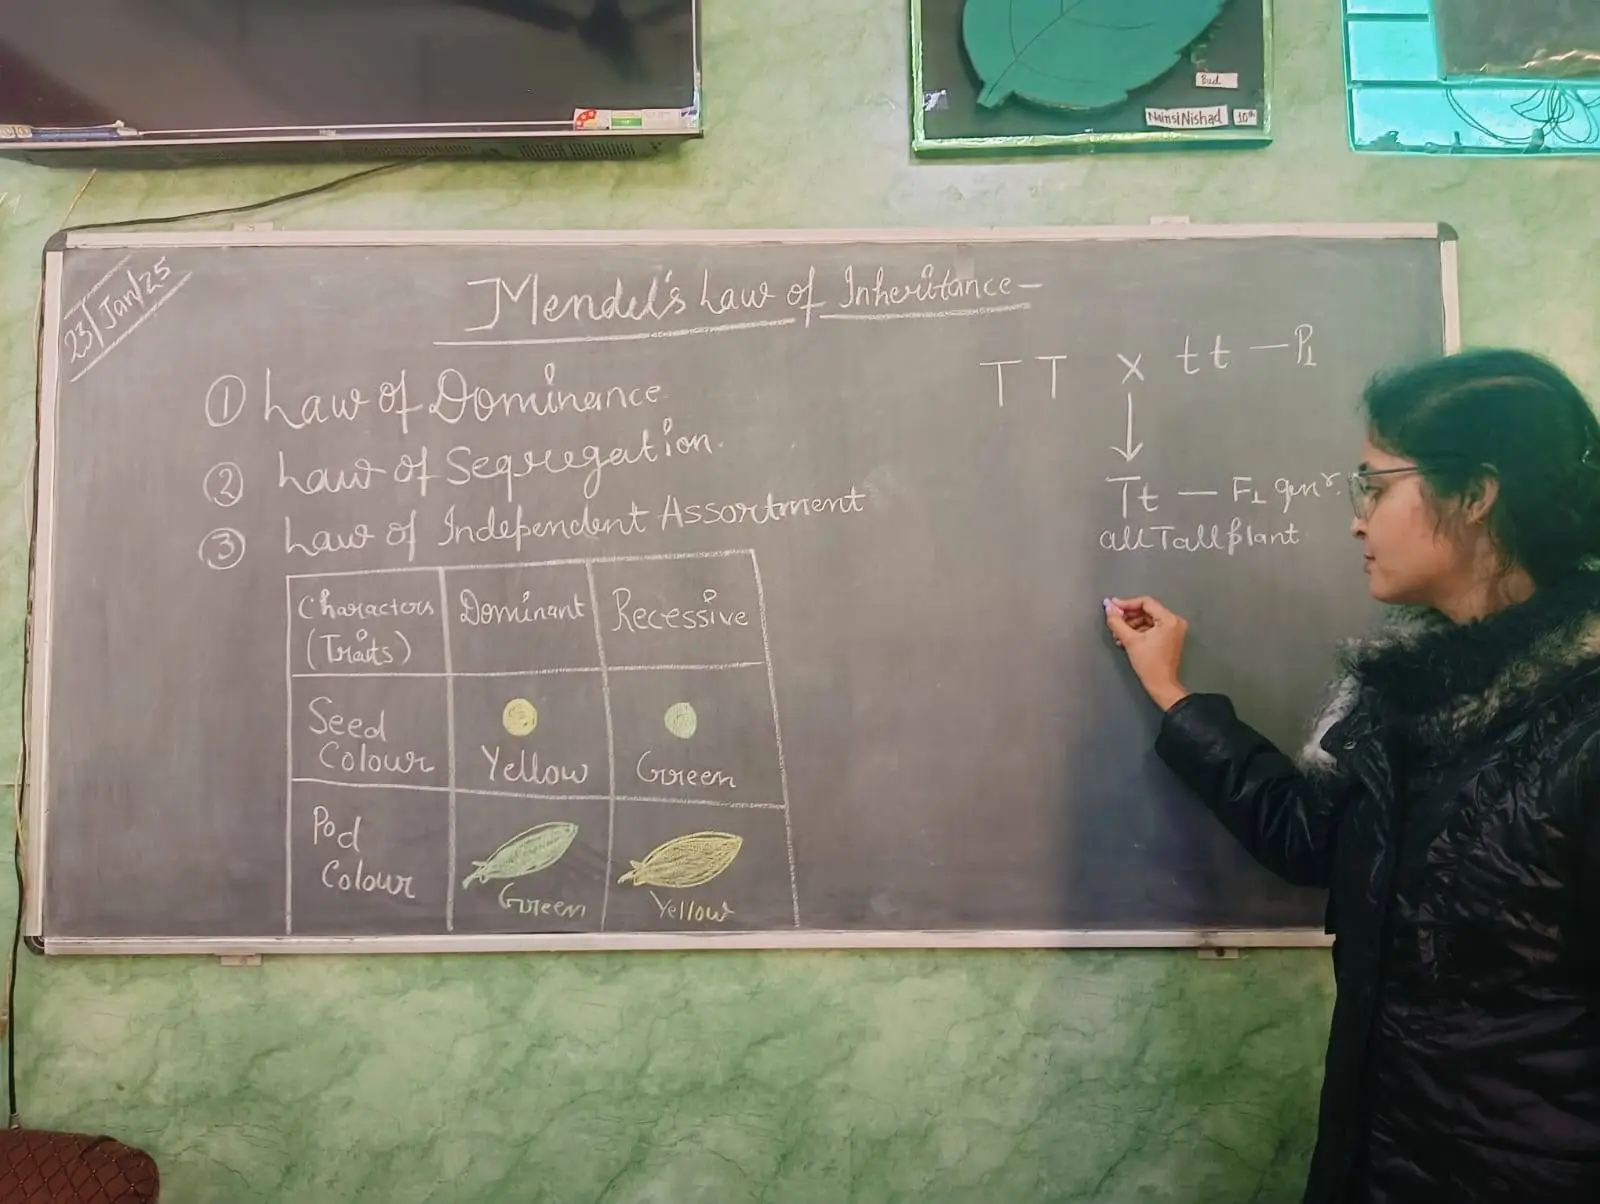 Bud
Nainsi Nishad 10th
23/Jan/25
Mendel's Law of Inheritance-
① Law of Dominance
② Law of Segregation.
③ Law of Independent Assortment
TT × tt - P1
Tt - F1 genr.
all Tall plant
Characters (Traits) Dominant Recessive
Seed Colour Yellow Green
Pod Colour Green Yellow